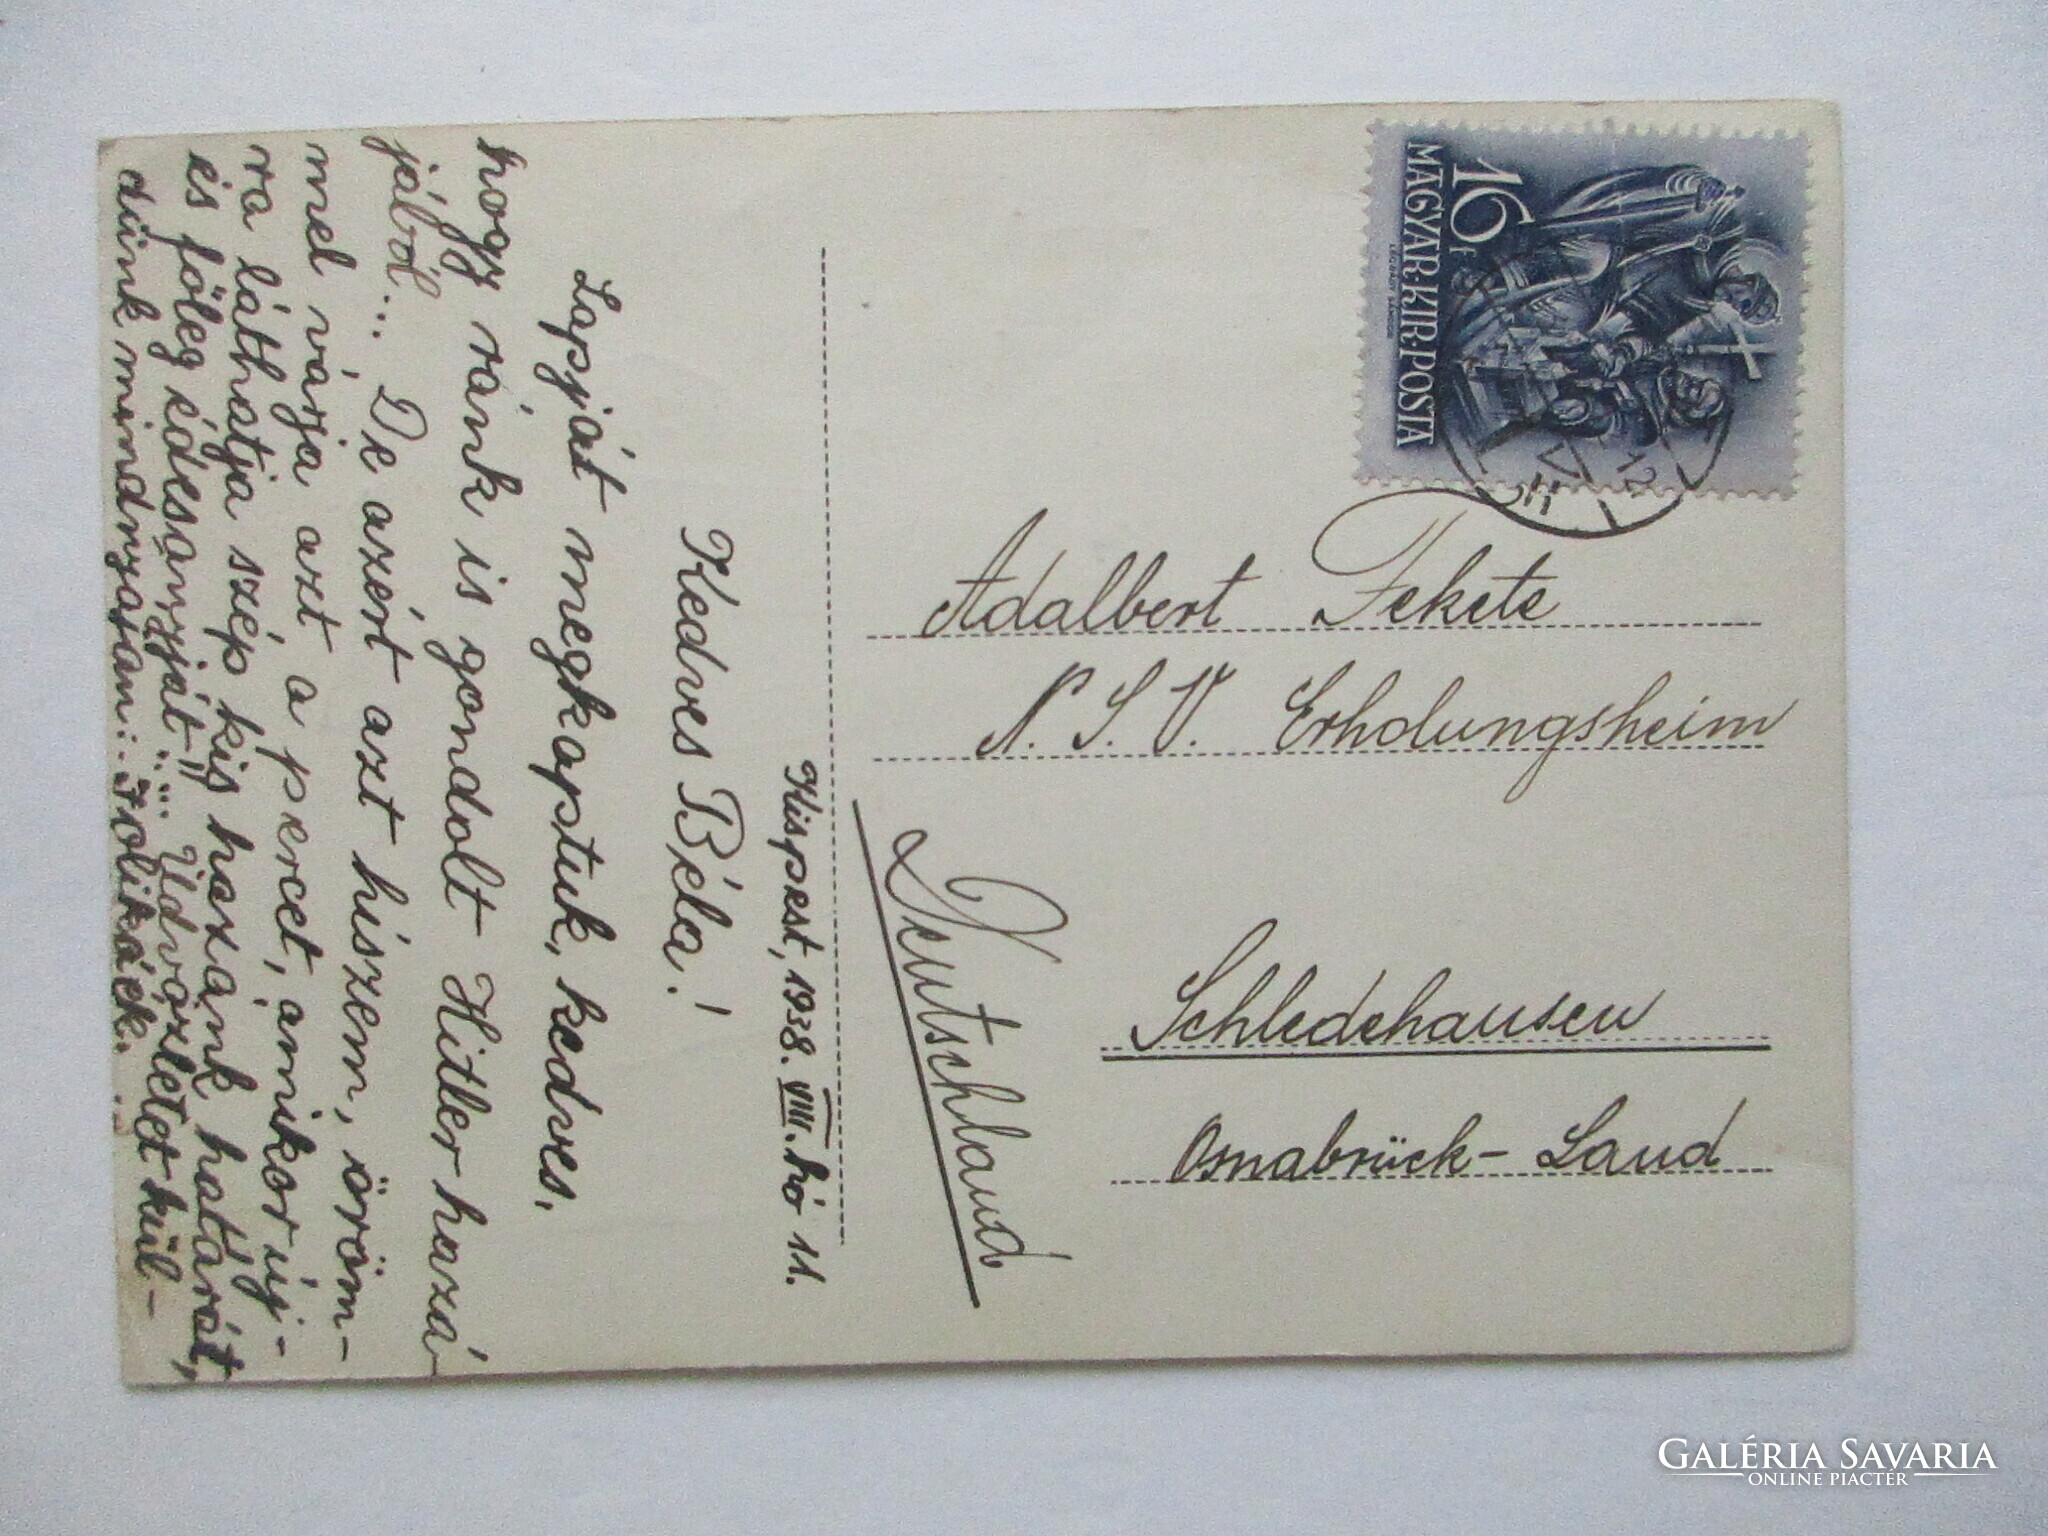 Kispest, 1938. VIII. hó 11.
Kedves Béla!
Lapját megkaptuk, kedves,
hogy ránk is gondolt Hitler hazá-
jából... De azért azt hiszem, öröm-
mel várja azt a percet, amikor új-
ra láthatja szép kis hazánk határát,
és főleg édesanyját!!... Üdvözletet kül-
dünk mindnyájan: Jolikáék...
16 f
MAGYAR·KIR·POSTA
LÉGRÁDY SÁNDOR
12
Adalbert Fekete
N. S. V. Erholungsheim
Schledehausen
Osnabrück-Land
Deutschland
GALÉRIA SAVARIA
ONLINE PIACTÉR